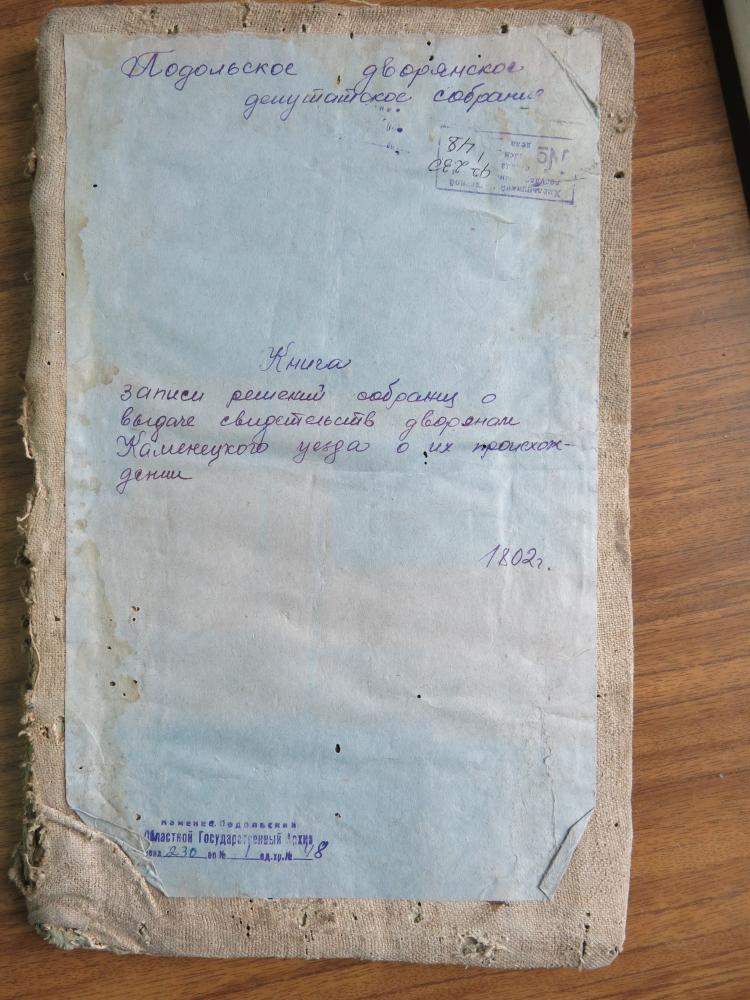 Подольское дворянское
депутатское собрание
Хмельницкий
230
1
48
№
дела
Книга
записи решений собраниц о
выдаче свидетельств дворянам
Каменецкого уезда о их происхож-
дении
1802г.
Каменец-Подольский
Областной Государственный Архив
фонд 230 оп № 1 ед.хр.№ 48